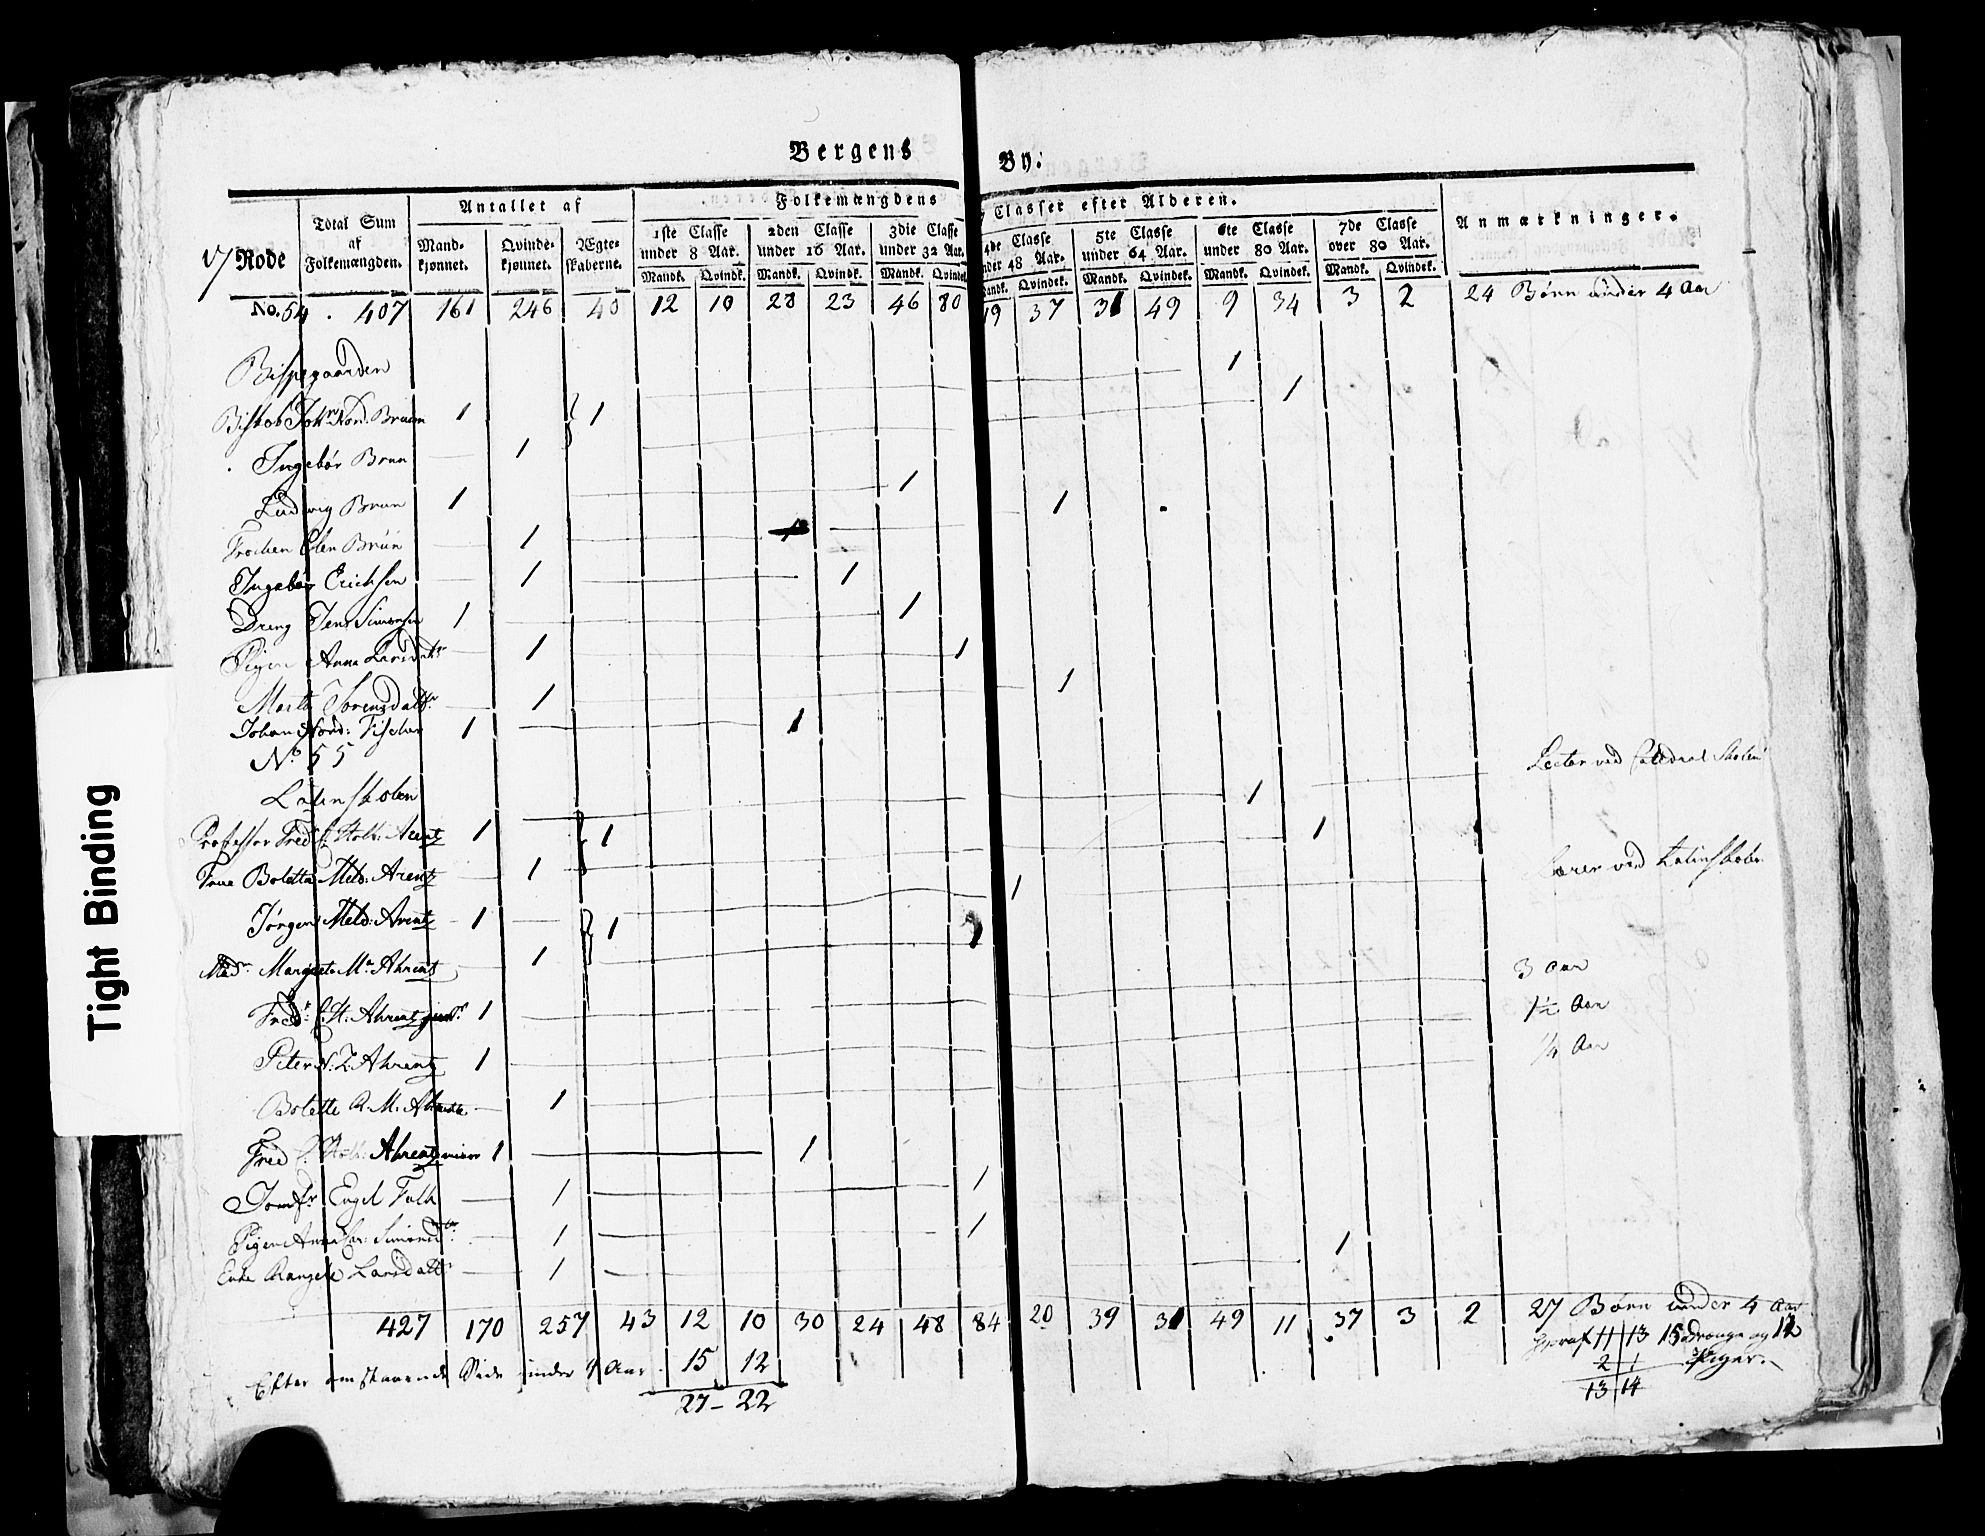 Bergens By.
17 Rode
Total Sum af Folkemængden.
Antallet af
Mandkjønnet. Qvindekjønnet. Ægteskaberne.
Folkemængdens Classer efter Alderen.
1ste Classe under 8 Aar. 2den Classe under 16 Aar. 3die Classe under 32 Aar. 4de Classe under 48 Aar. 5te Classe under 64 Aar. 6te Classe under 80 Aar. 7de Classe over 80 Aar.
Mandk. Qvindk. Mandk. Qvindk. Mandk. Qvindek. Mandk. Qvindek. Mandk. Qvindek. Mandk. Qvindek. Mandk. Qvindek.
Anmærkninger.
No. 54 . 407 161 246 40 12 10 28 23 46 80 19 37 31 49 9 34 3 2 24 Børn under 4 Aar
Bispegaarden
Biskob Joh: Nord. Bruun 1 1 1
Ingebor Brun 1 1
Ludwig Brun 1 1
Frøchen Elen Brun 1 1
Ingebor Erichsen 1 1
Dreng Jens Simonsen 1 1
Pigen Anna Larsdatr 1 1
Marta Sorensdattr 1 1
Johan Nord: Fischer 1 1
No 55
Latinskolen
Professor Fred C: Holb: Arentz 1 1 1 Lector ved Catedral Skolen
Frue Boletta Meld: Arentz 1 1
Jørgen Meld: Arentz 1 1 1 Lærer ved Latinskolen
Mad. Margreta Ma Ahrentz 1 1
Fredr C. H: Ahrentz 1 3 Aar
Peter N. Z. Ahrentz 1 1½ Aar
Bolette R. M. Ahrentz 1 ¼ Aar
Fred C. Holb: Ahrentz 1 1
Jomfr Engel Falk 1 1
Pigen Anna Simonsd 1 1
Enke Larsdattr 1 1
427 170 257 43 12 10 30 24 48 84 20 39 31 49 11 37 3 2 27 Børn under 4 Aar
Efter omstaaende Side under 4 Aar 15 12
27 - 22
hvoraf 11 13 15 Drenge og 12 Piger
2 1
13 14
Tight Binding